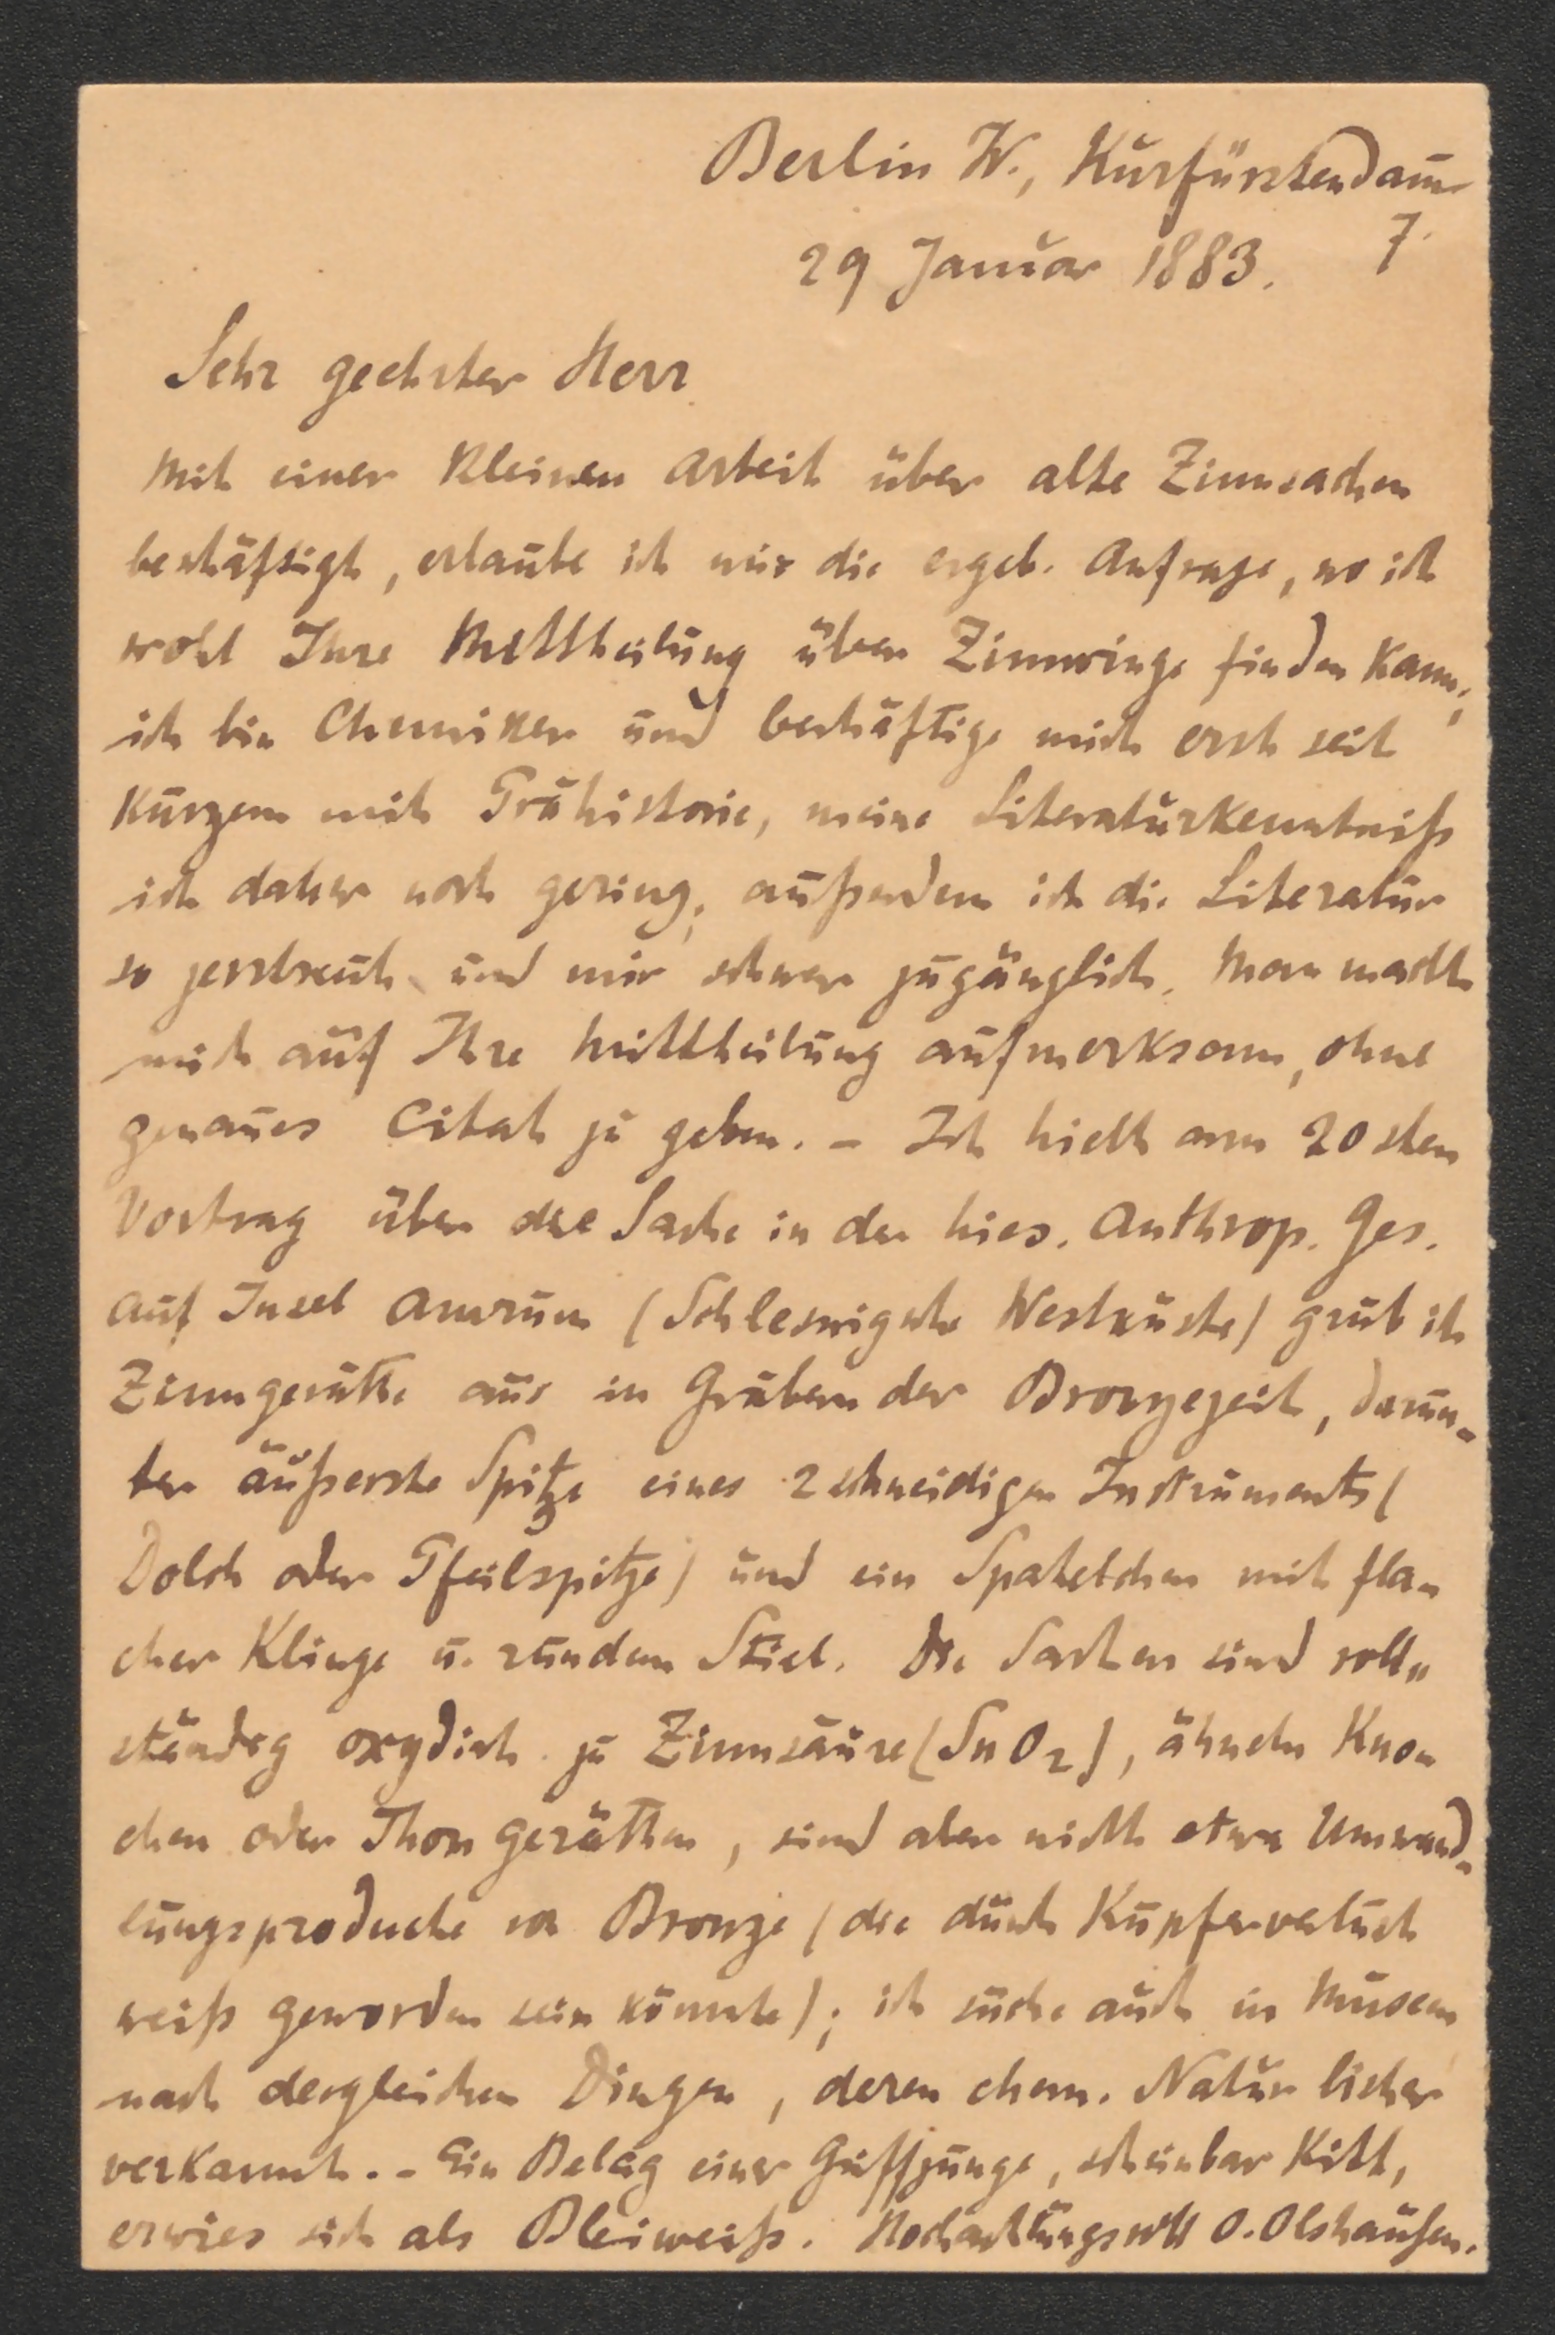 Berlin W., Kurfürstendam̅
7.
29 Januar 1883.
Sehr geehrter Herr
Mit einer kleinen Arbeit über alte Zinnsachen
beschäftigt, erlaube ich mir die ergeb. Anfrage, wo ich
wohl Ihre Mittheilung über Zinnringe finden kann;
ich bin Chemiker und beschäftige mich erst seit
Kurzem mit Prähistorie, meine Literaturkenntniß
ist daher noch gering; außerdem ist die Literatur
so zerstreut und mir schwer zugänglich. Man machte
mich auf Ihre Mittheilung aufmerksam, ohne
genaues Citat zu geben. – Ich hielt am 20sten
Vortrag über die Sache in der hies. Anthrop. Ges.
Auf Insel Amrum (Schleswigsche Westküste) grub ich
Zinngeräthe aus in Gräbern der Bronzezeit, darun-
ter äußerste Spitze eines 2schneidigen Instruments (
Dolch oder Pfeilspitze) und ein Spatelchen mit fla-
cher Klinge u. rundem Stiel. Die Sachen sind voll-
ständig oxydirt zu Zinnsäure (SnO2), ähneln Kno-
chen oder Thongeräthen, sind aber nicht etwa Umwand-
lungsproducte von Bronze (die durch Kupferverlust
weiß geworden sein könnte); ich suche auch in Museen
nach dergleichen Dingen, deren chem. Natur bisher
verkannt. – Ein Belag einer Griffzunge, scheinbar Kitt,
erwies sich als Bleiweiß. Hochachtungsvoll O. Olshausen.